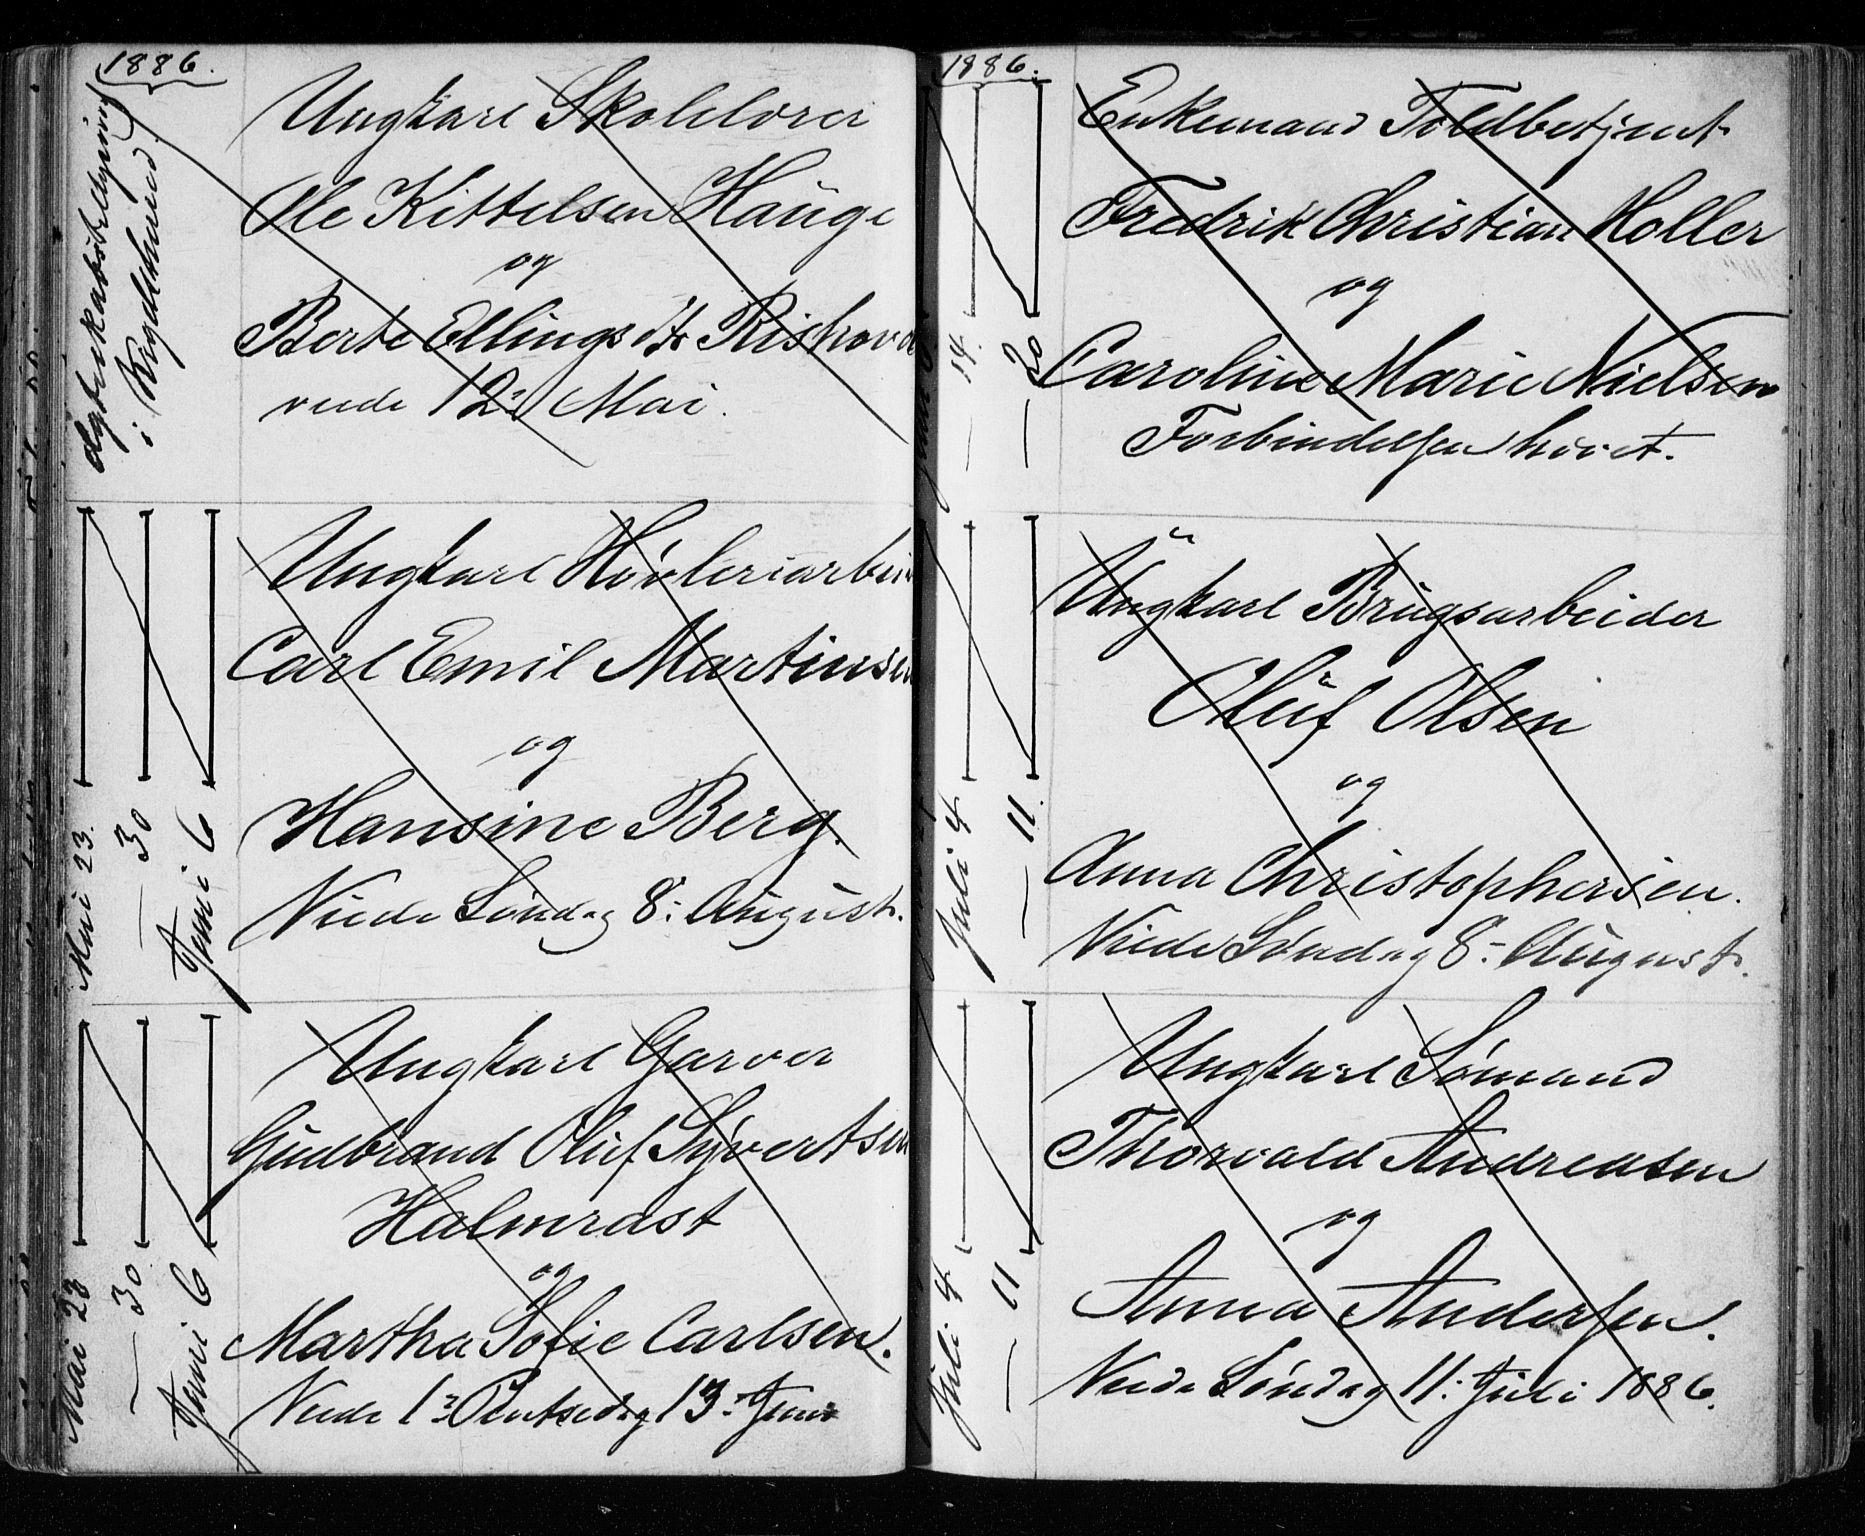 1886.
Ungkarl Skolelærer
Ole Kittelsen Hauge
og
Berte Ellingsdtr Rishovd
viede 12: Mai.
i Krødsherred
Ungkarl Høvleriarbei
Carl Emil Martinsen
og
Hansine Berg.
Viede Søndag 8: August.
Mai 23.
— 30
Juni 6
Ungkarl Garver
Gudbrand Oluf Syvertsen
Halmrast
og
Martha Sofie Carlsen.
Viede 1: Pintsedag 13: Juni
Mai 23
— 30
Juni 6
1886.
Enkemand Toldbetjent
Fredrik Christian Holler
og
Caroline Marie Nielsen
Forbindelsen hævet.
— 14.
— 20
Ungkarl Brugsarbeider
Oluf Olsen
og
Anna Christophersen.
Viede Søndag 8- August.
Juli 4
— 11.
Ungkarl Sømand
Thorvald Andreasen
og
Anna Andersen.
Viede Søndag 11: Juli 1886.
Juli 4
— 11